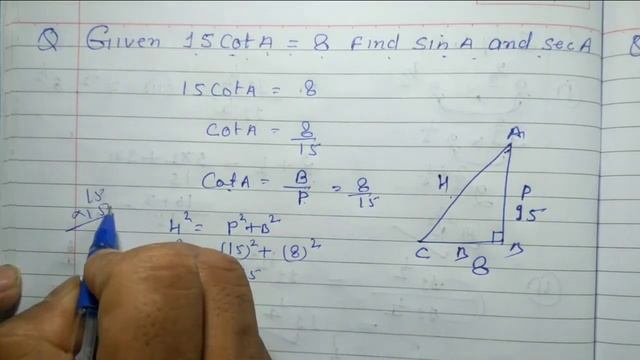 Q Given 15CotA = 8 Find SinA and SecA
15CotA = 8
CotA = 8/15
CotA = B/P = 8/15
H² = P²+B²
(15)²+(8)²
5
15
×15
A
H
P
15
C
B
B
8